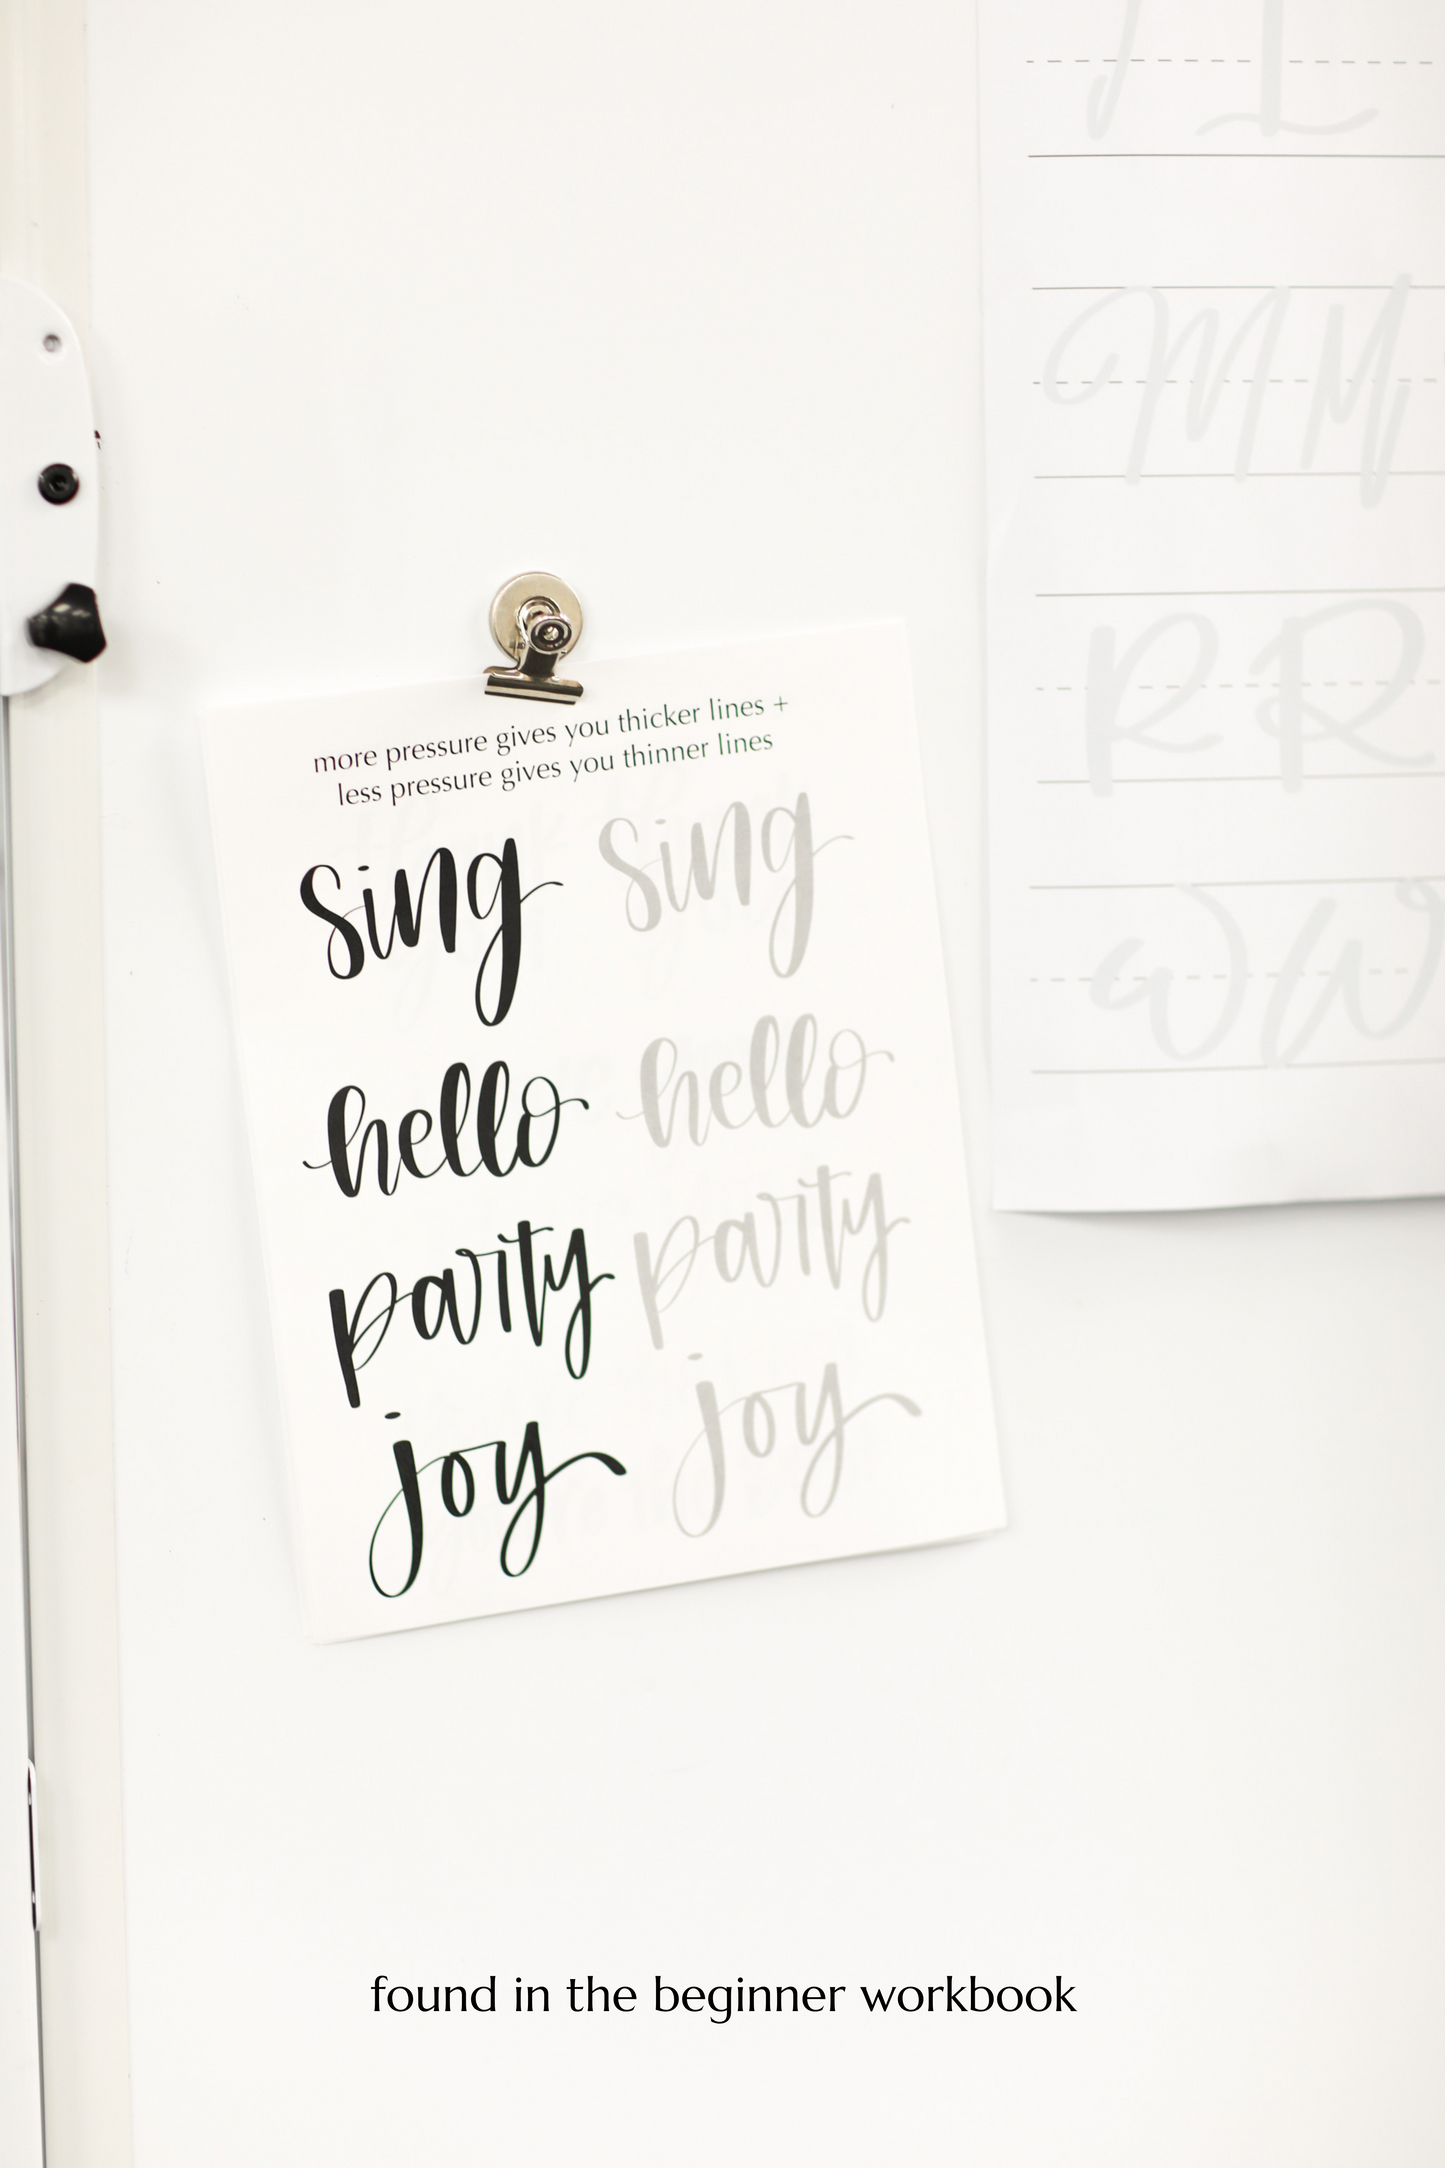 more pressure gives you thicker lines +
less pressure gives you thinner lines
sing sing
hello hello
party party
joy joy
M M
R R
W W
found in the beginner workbook